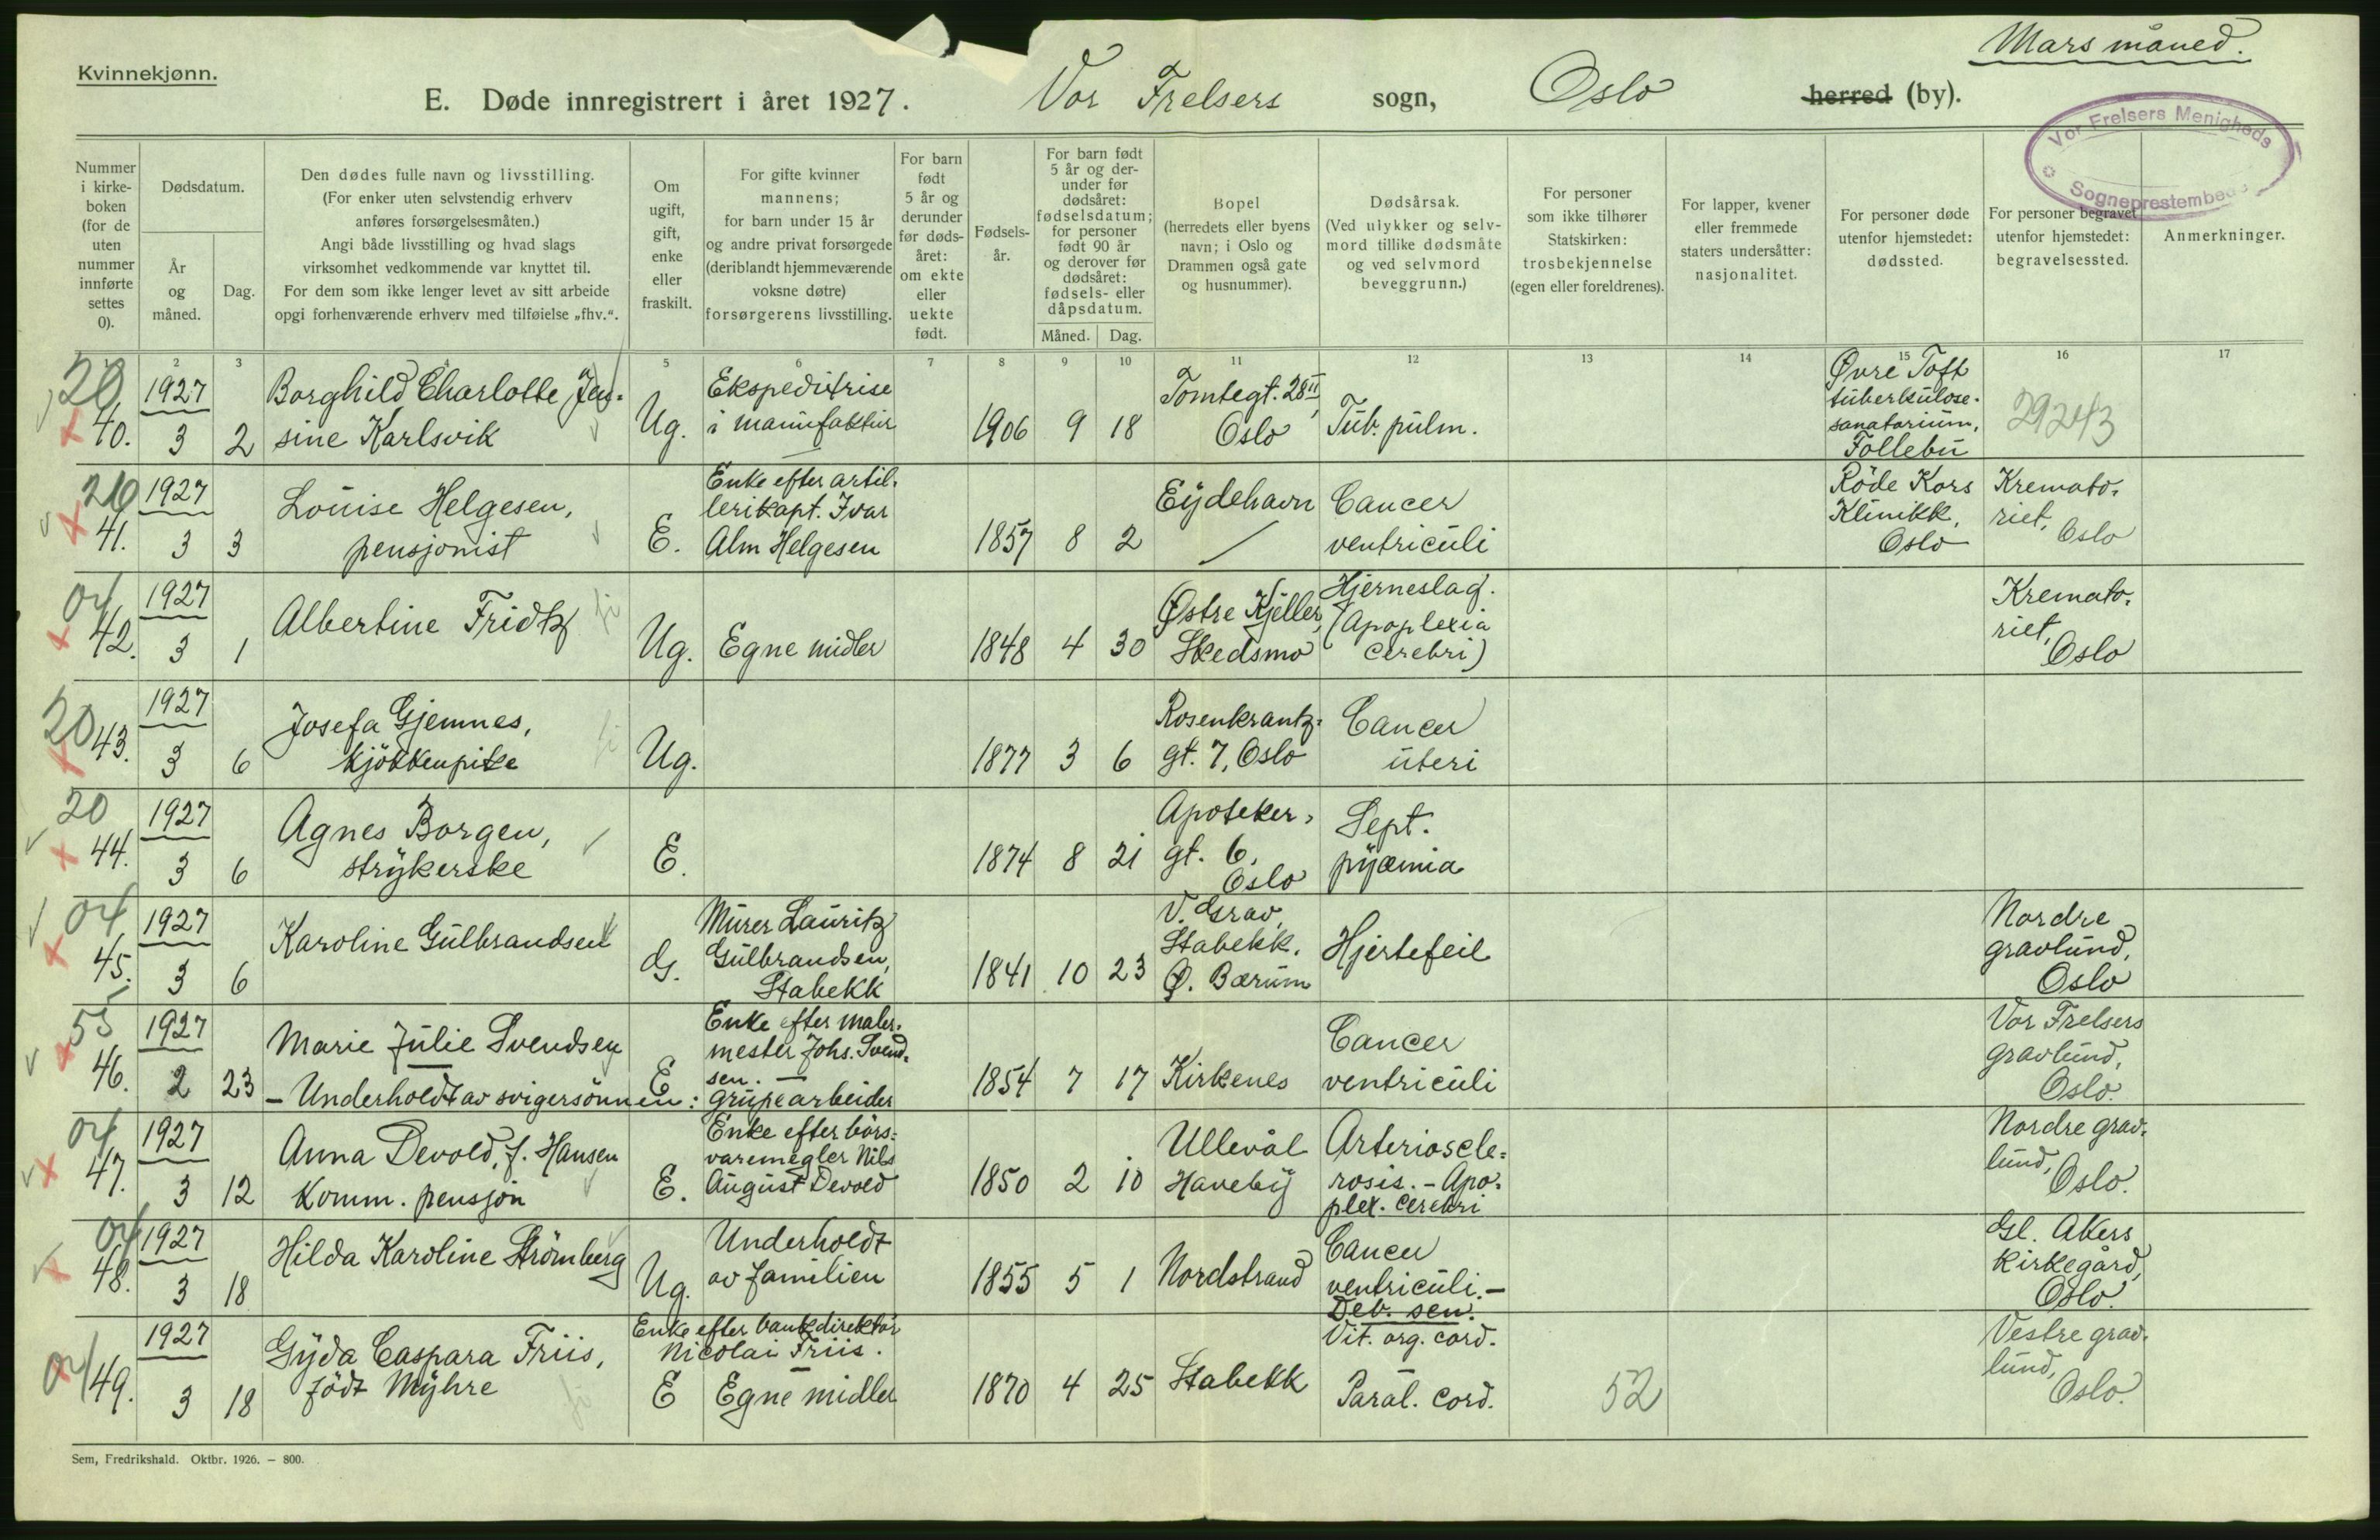 Mars måned.
Kvinnekjønn.
E. Døde innregistrert i året 1927. Vor Frelsers sogn, Oslo herred (by).
Vor Frelsers Menigheds
Sogneprestembede
Nummer
i kirke-
boken
(for de
uten
nummer
innførte
settes
0).
Dødsdatum.
År
og
måned.
Dag.
Den dødes fulle navn og livsstilling.
(For enker uten selvstendig erhverv
anføres forsørgelsesmåten.)
Angi både livsstilling og hvad slags
virksomhet vedkommende var knyttet til.
For dem som ikke lenger levet av sitt arbeide
opgi forhenværende erhverv med tilføielse „fhv.“.
Om
ugift,
gift,
enke
eller
fraskilt.
For gifte kvinner
mannens;
for barn under 15 år
og andre privat forsørgede
(deriblandt hjemmeværende
voksne døtre)
forsørgerens livsstilling.
For barn
født
5 år og
derunder
før døds-
året:
om ekte
eller
uekte
født.
Fødsels-
år.
For barn født
5 år og der-
under før
dødsåret:
fødselsdatum;
for personer
født 90 år
og derover før
dødsåret:
fødsels- eller
dåpsdatum.
Måned. Dag.
Bopel
(herredets eller byens
navn; i Oslo og
Drammen også gate
og husnummer).
Dødsårsak.
(Ved ulykker og selv-
mord tillike dødsmåte
og ved selvmord
beveggrunn.)
For personer
som ikke tilhører
Statskirken:
trosbekjennelse
(egen eller foreldrenes).
For lapper, kvener
eller fremmede
staters undersåtter:
nasjonalitet.
For personer døde
utenfor hjemstedet:
dødssted.
For personer begravet
utenfor hjemstedet:
begravelsessted.
Anmerkninger.
2 3 5 6 7 8 9 10 11 12 13 14 15 16 17
20
40.
1927
3 2
Borghild Charlotte Jen-
sine Karlsvik
Ug.
Ekspeditrise
i manufaktur
1906 9 18
Tomtegt. 28 II,
Oslo
Tub. pulm.
Øvre Toft
tuberkulose-
sanatorium,
Follebu
29243
41.
1927
3 3
Louise Helgesen,
pensjonist
E.
Enke efter artil-
lerikapt. Ivar
Alm Helgesen
1857 8 2
Eydehavn
Cancer
ventriculi
Röde Kors
Klinikk,
Oslo
Kremato-
riet, Oslo
04
42.
1927
3 1
Albertine Fridtz
Ug.
Egne midler
1848 4 30
Østre Kjeller,
Skedsmo
Hjerneslag.
(Apoplexia
cerebri)
Kremato-
riet,
Oslo
20
43.
1927
3 6
Josefa Gjemnes,
kjökkenpike
Ug.
1877 3 6
Rosenkrantz-
gt. 7, Oslo
Cancer
uteri
20
44.
1927
3 6
Agnes Borgen,
strykerske
E.
1874 8 21
Apoteker-
gt. 6,
Oslo
Sept.
pyæmia
04
45.
1927
3 6
Karoline Gulbrandsen
G.
Murer Lauritz
Gulbrandsen,
Stabekk
1841 10 23
V. Grav,
Stabekk.
Ø. Bærum
Hjertefeil
Nordre
gravlund,
Oslo
55
46.
1927
2 23
Marie Julie Svendsen
- Underholdt av svigersönnen:
E
Enke efter maler-
mester Johs. Svend-
sen. —
grupearbeider
1854 7 17
Kirkenes
Cancer
ventriculi
Vor Frelsers
gravlund,
Oslo.
04
47.
1927
3 12
Anna Devold, f. Hansen
Komm. pensjon
E.
Enke efter börs-
varemegler Nils
August Devold
1850 2 10
Ullevål
Haveby
Arterioscle-
rosis. - Apo-
plex. cerebri
Nordre grav-
lund,
Oslo.
04
48.
1927
3 18
Hilda Karoline Strömberg
Ug.
Underholdt
av familien
1855 5 1
Nordstrand
Cancer
ventriculi. -
Deb. sen.
Gl. Akers
kirkegård,
Oslo.
04
49.
1927
3 18
Gyda Caspara Friis,
født Myhre
E
Enke efter bankdirektör
Nicolai Friis.
Egne midler
1870 4 25
Stabekk
Vit. org. cord.
Paral. cord.
52
Vestre grav-
lund,
Oslo.
Sem, Fredrikshald. Oktbr. 1926. – 800.